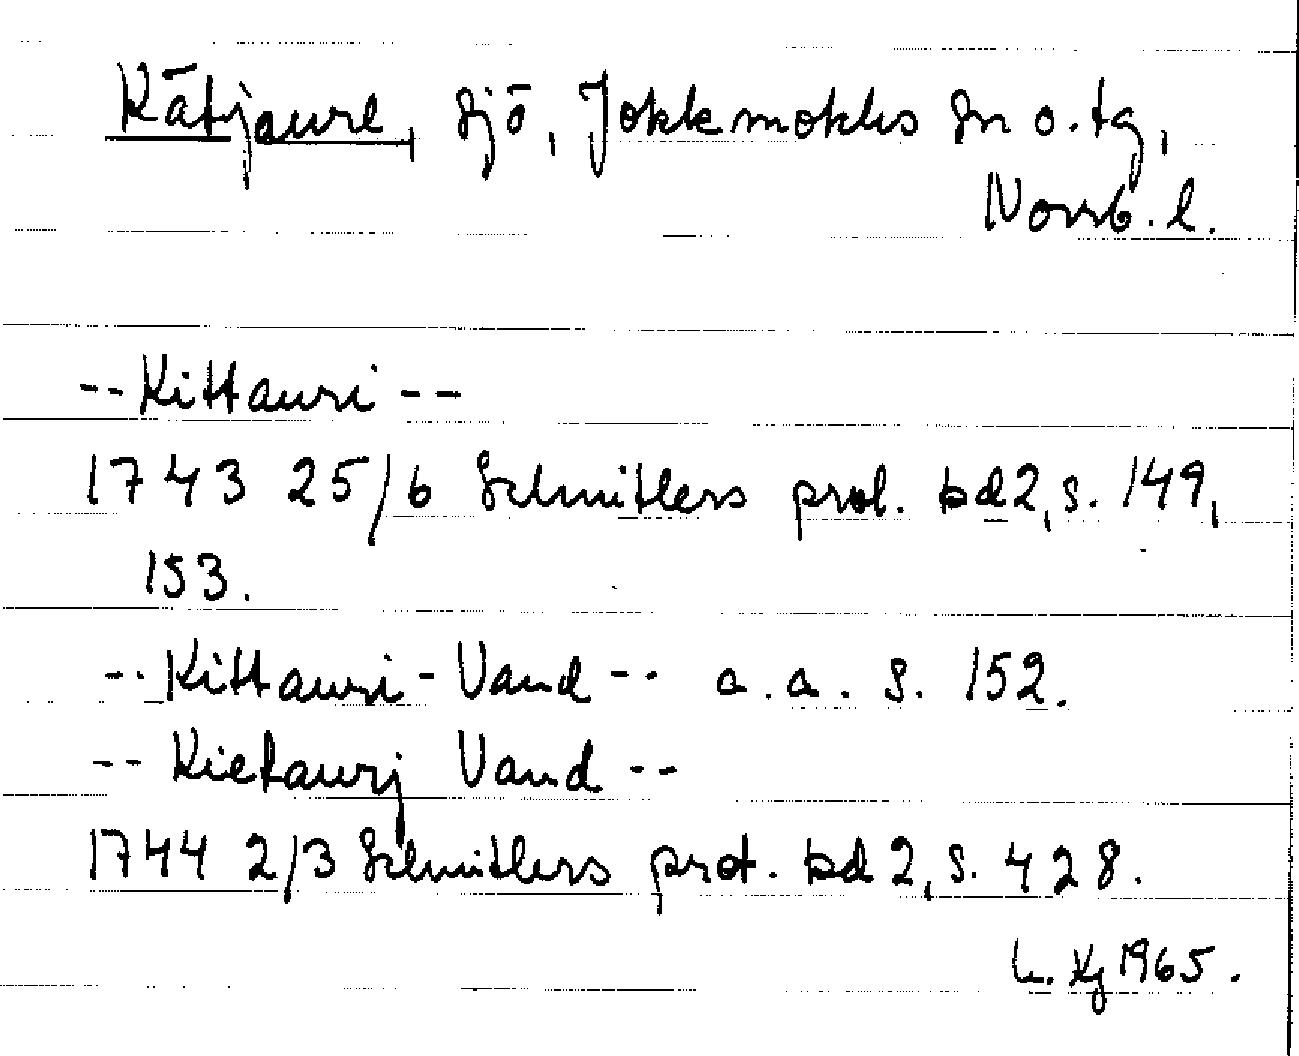 Kätjaure, sjö, Jokkmokks sn o. tg,
Norrb. l.
-- Kittauri --
1743 25/6 Schnitlers prot. bd 2, s. 149,
153.
-- Kittauri-Vand -- a.a. s. 152.
-- Kietaurj Vand --
1744 2/3 Schnitlers prot. bd 2, s. 428.
L. Kj 1965.